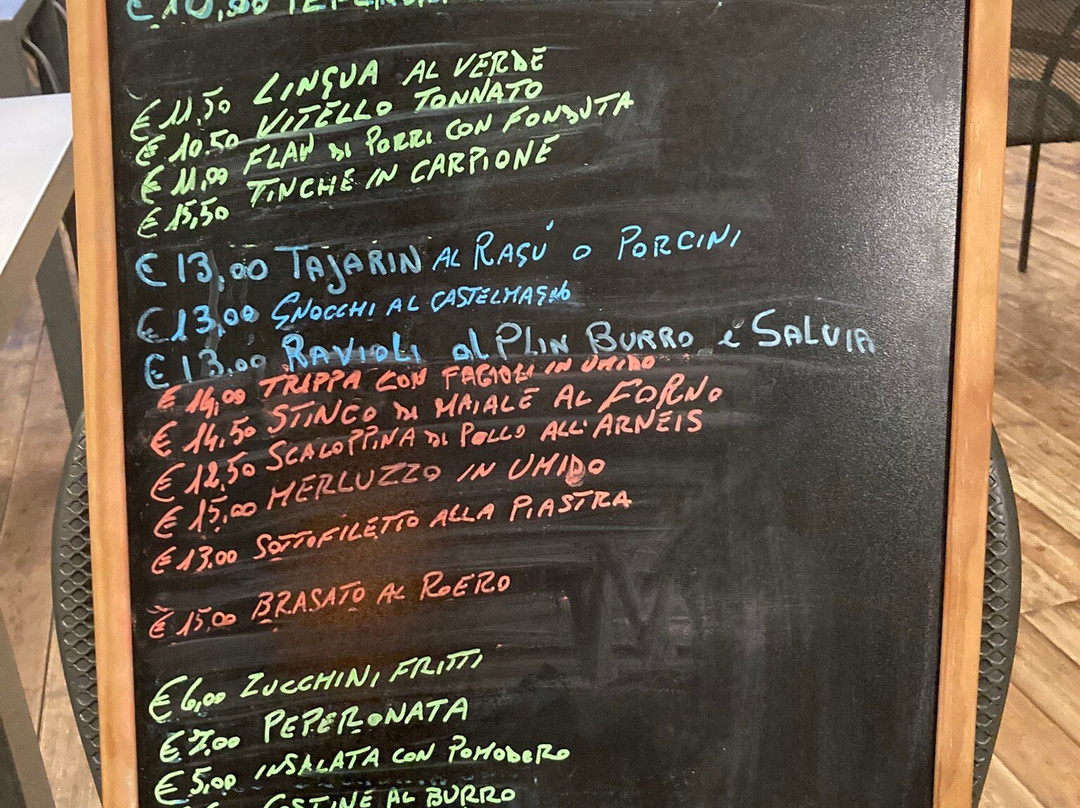 € 10,00
€ 11,50 LINGUA AL VERDE
€ 10.50 VITELLO TONNATO
€ 11,00 FLAN DI PORRI CON FONDUTA
€ 15,50 TINCHE IN CARPIONE
€ 13,00 TAJARIN AL RAGÚ O PORCINI
€ 13,00 GNOCCHI AL CASTELMAGNO
€ 13.00 RAVIOLI al PLIN BURRO e SALVIA
€ 14,00 TRIPPA CON FAGIOLI IN UMIDO
€ 14,50 STINCO DI MAIALE AL FORNO
€ 12,50 SCALOPPINA DI POLLO ALL'ARNEIS
€ 15,00 MERLUZZO IN UMIDO
€ 13.00 SOTTOFILETTO ALLA PIASTRA
€ 15.00 BRASATO AL ROERO
€ 6,00 ZUCCHINI FRITTI
€ 7.00 PEPERONATA
€ 5,00 INSALATA CON POMODORO
COSTINE AL BURRO